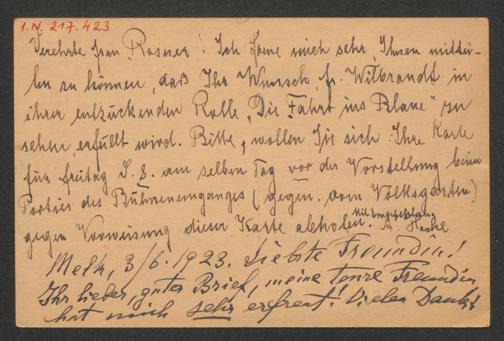 I.N. 217.423
Verehrte Frau Rosner! Ich freue mich sehr, Ihnen mittei-
len zu können, daß Ihr Wunsch, Fr. Wilbrandt in
ihrer entzückenden Rolle „Die Fahrt ins Blaue“ zu
sehen, erfüllt wird. Bitte, wollen Sie sich Ihre Karte
für Freitag d. 8. am selben Tag vor der Vorstellung beim
Portier des Bühneneinganges (gegen. vom Volksgarten)
gegen Vorweisung dieser Karte abholen. Mit Empfehlung
Melk, 3/6. 1923. Liebste Freundin!
Ihr lieber, guter Brief, meine teure Freundin
hat mich sehr erfreut! Vielen Dank!